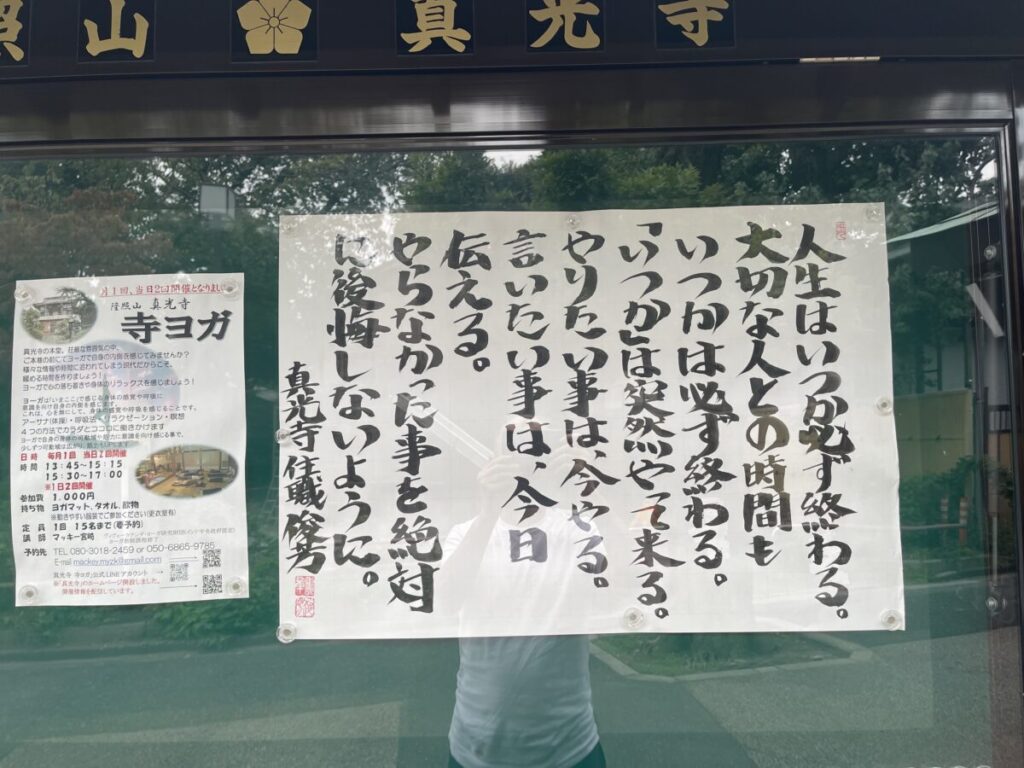 照山 真光寺
人生はいつか必ず終わる。
大切な人との時間も
いつかは必ず終わる。
「いつか」は突然やって来る。
やりたい事は、今やる。
言いたい事は、今日
伝える。
やらなかった事を絶対
に後悔しないように。
真光寺住職 俊芳
月1回、当日2回開催となりました
隆照山 真光寺
寺ヨガ
真光寺の本堂、荘厳な雰囲気の中、
ご本尊の前にてヨーガで自身の内側を感じてみませんか?
様々な情報や時間に追われてしまう現代だからこそ、
緩める時間を作りましょう!
ヨーガで心の落ち着きや身体のリラックスを感じましょう!
ヨーガは「いまここ」で感じる身体の感覚や呼吸に
意識を向け自身の内側を感じます
これは、心を無にして、身体の感覚や呼吸を感じることです。
アーサナ(体操)・呼吸法・リラクゼーション・瞑想
4つの方法でカラダとココロに働きかけます
ヨーガで自身の身体の可動域や筋力に意識を向け感じる事で、
日時 毎月1回 当日2回開催
時間 13:45~15:15
15:30~17:00
※1日2回開催
参加費 1,000円
持ち物 ヨガマット、タオル、飲物
※動きやすい服装でご参加ください(更衣室有)
定員 1回 15名まで(要予約)
講師 マッキー宮崎
予約先 TEL 080-3018-2459 or 050-6865-9785
E-mail mackey.myzk@gmail.com
真光寺 寺ヨガ公式LINE アカウント
※「真光寺」のホームページ開設しました。
開催情報を配信しています。